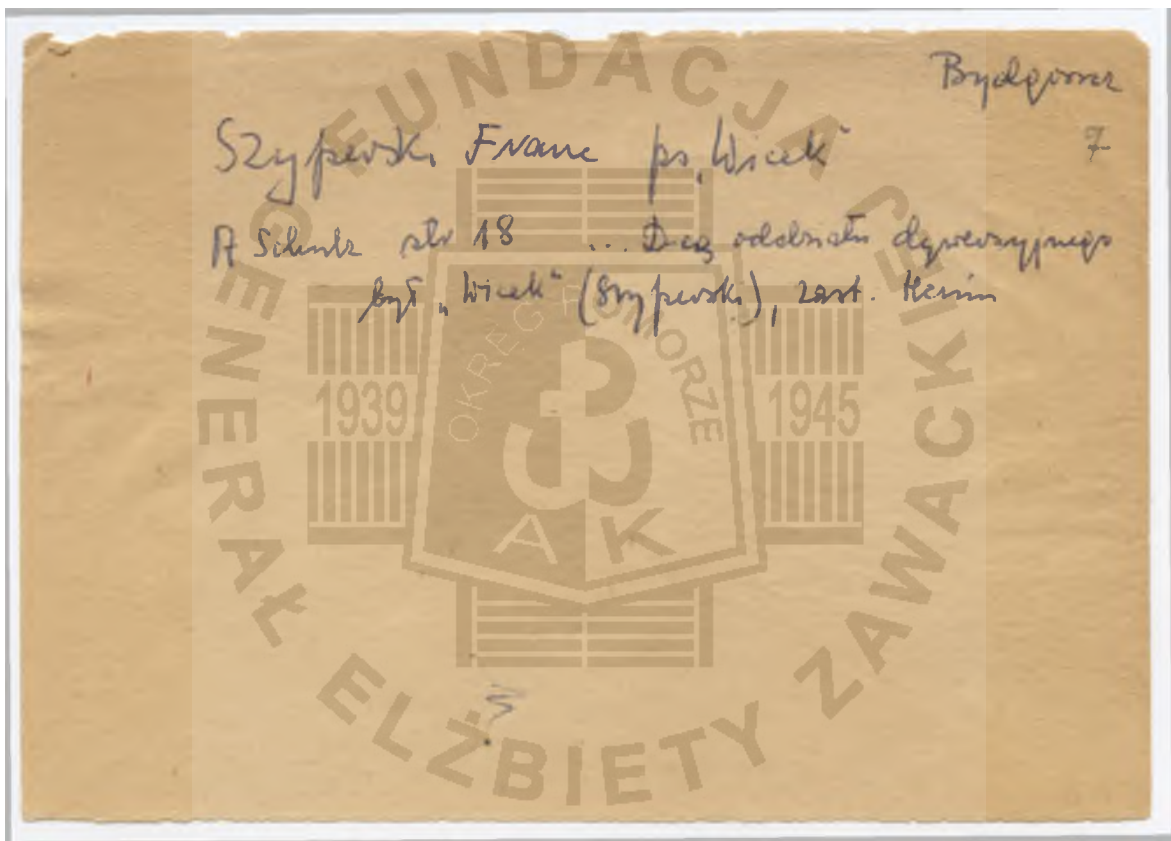 Bydgoszcz
7
Szypewski Franc ps. „Wicek"
A Schulz str 18 ... D-cą oddziału dywersyjnego
był „Wicek" (Szypewski), zast.
FUNDACJA
GENERAŁ ELŻBIETY ZAWACKIEJ
OKRĘG POMORZE
1939
1945
AK